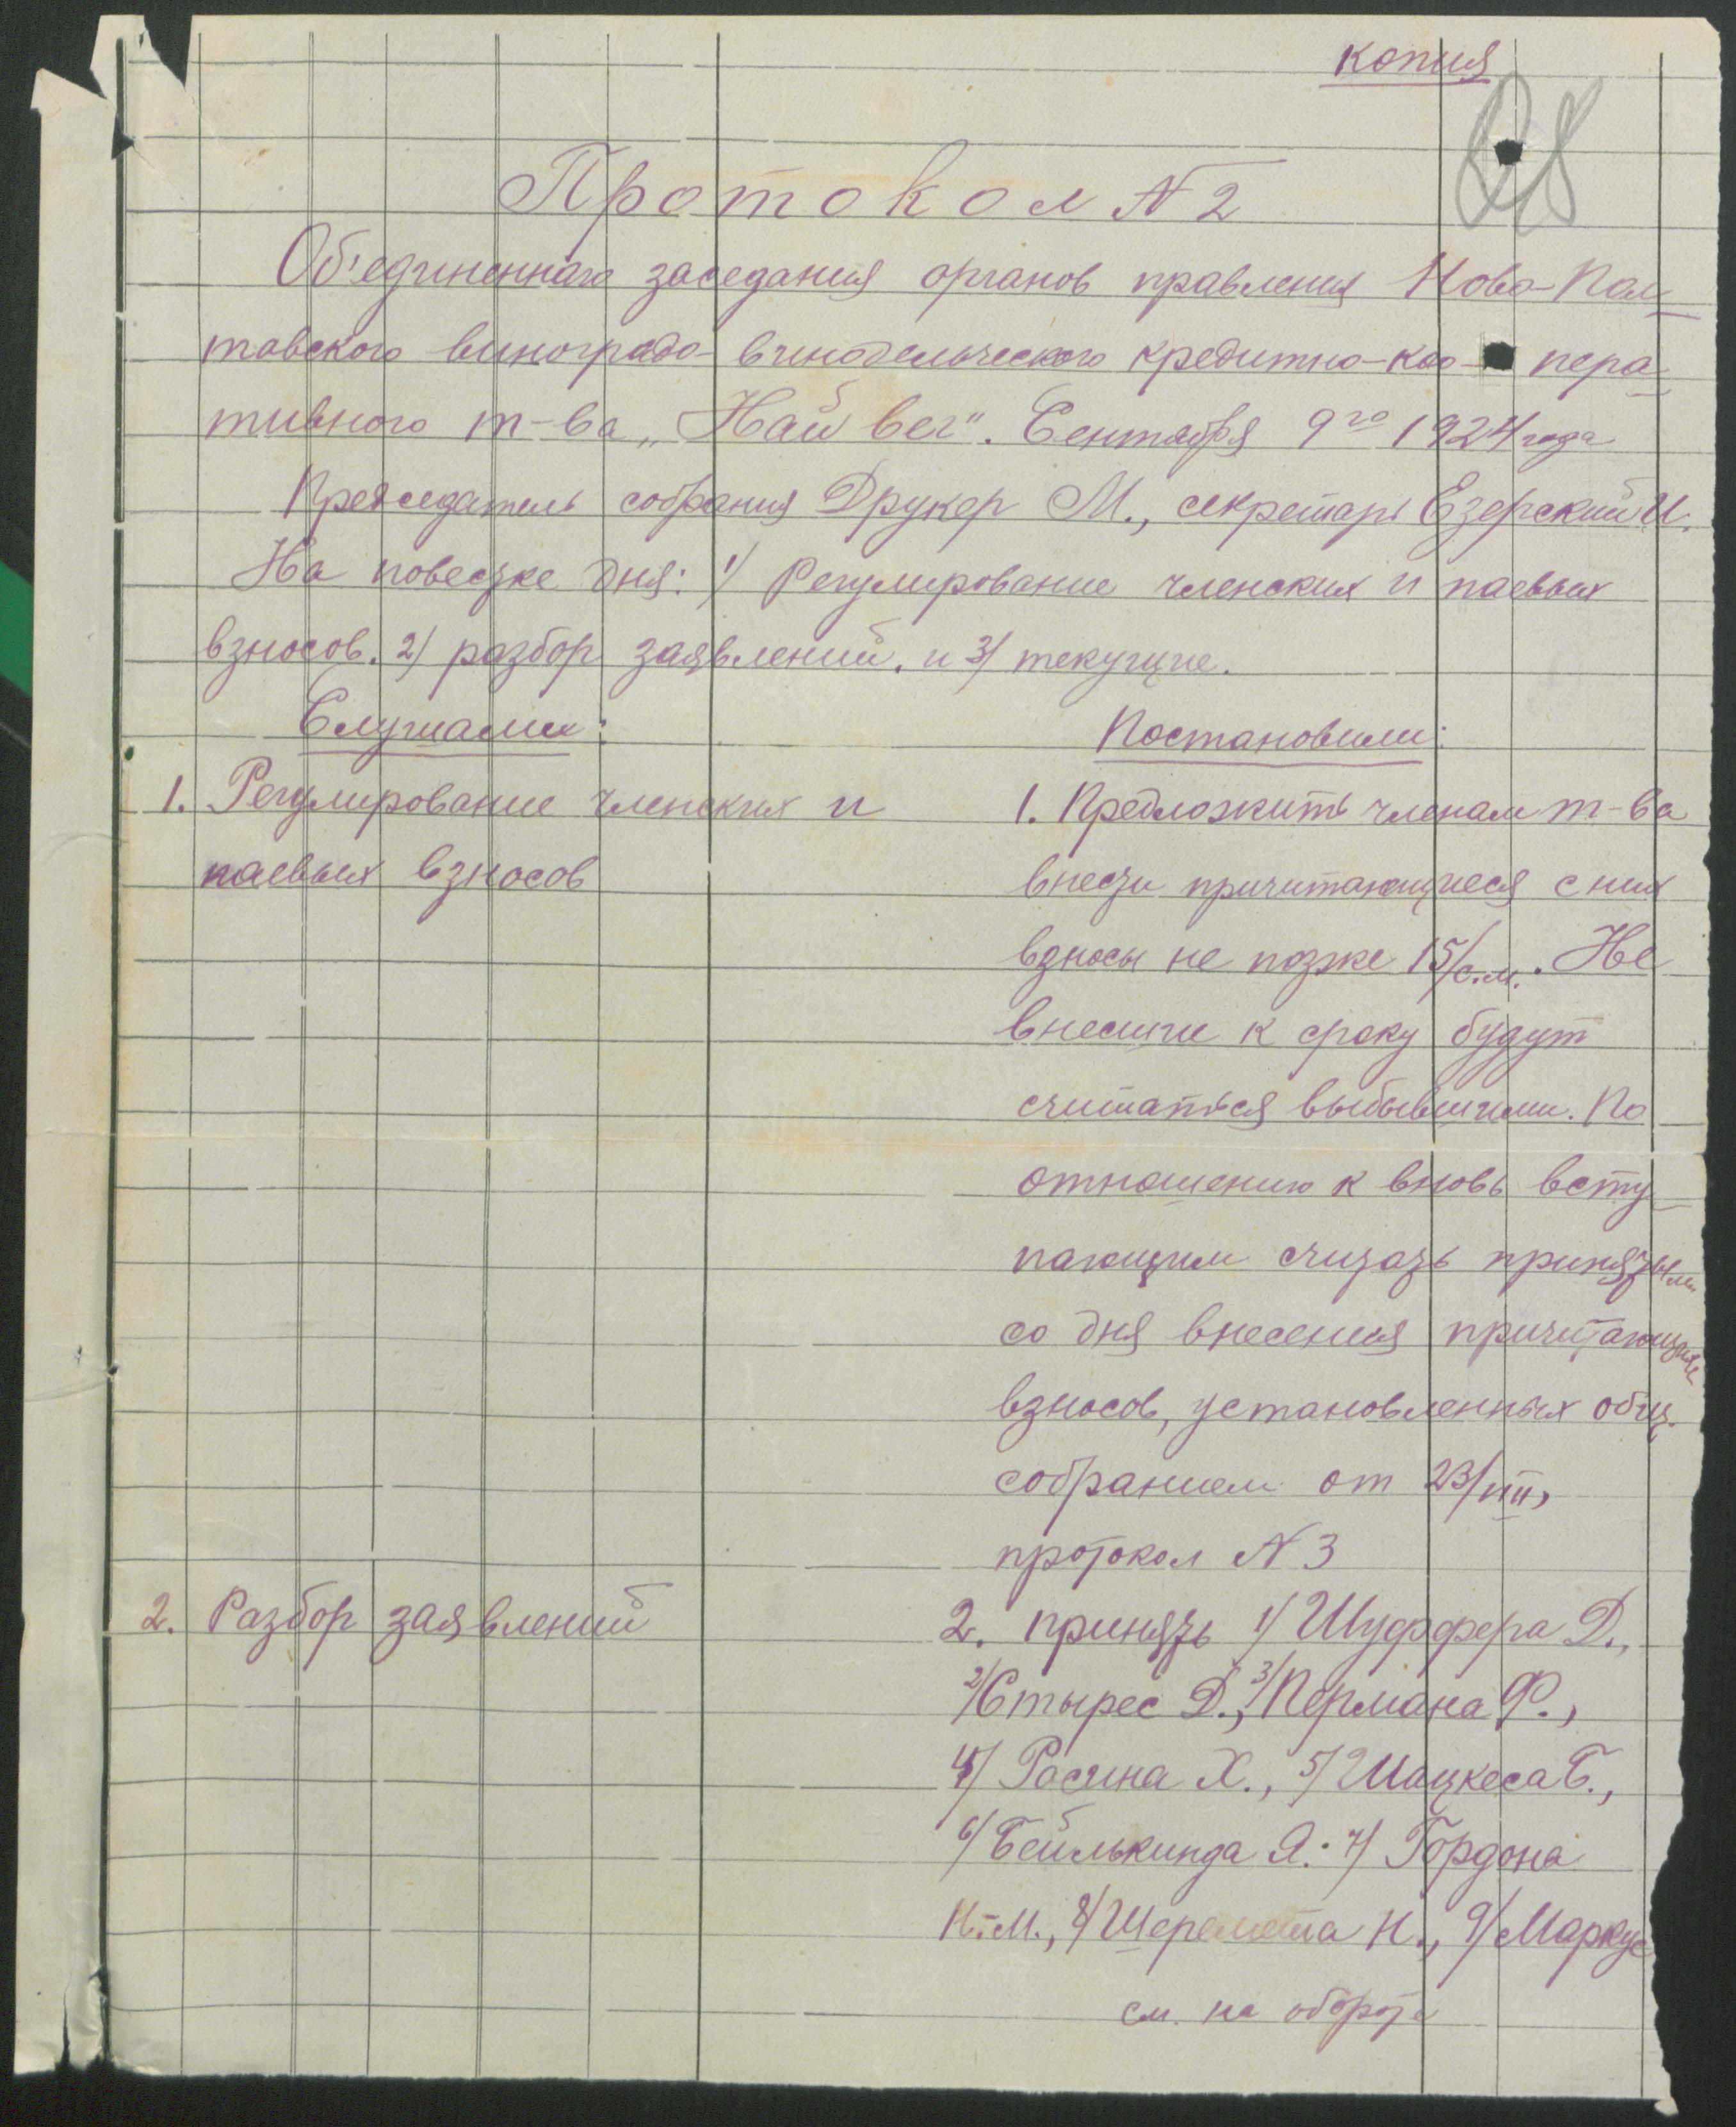 копия
28
Протокол N 2
Об'единеннаго заседания органов правления Ново-Пол-
тавского виноградо-винодельческого кредитно-коо-пера-
тивного т-ва „Най вег". Сентября 9го 1924 года
Председатель собрания Друкер М., секретарь Езерский И.
На повестке дня: 1/ Регулирование членских и паевых
взносов. 2/ разбор заявлений. и 3/ текущие.
Слушали: Постановили:
1. Регулирование членских и
паевых взносов
1. Предложить членам т-ва
внести причитающиеся с них
взносы не позже 15/с.м. Не
внесшие к сроку будут
считаться выбывшими. По
отношению к вновь всту-
пающим считать принятыми
со дня внесения причитающихся
взносов, установленных общ.
собранием от 23/VIII,
протокол N 3
2. Разбор заявлений
2. принять 1/ Шуффера Д.,
2/ Стырес Д., 3/ Пермана Ф.,
4/ Расина Х., 5/ Шацкеса Б.,
6/ Бейлькинда Я. 7/ Гордона
Н.М., 8/ Шеремета Н., 9/ Маркус
см. на обороте